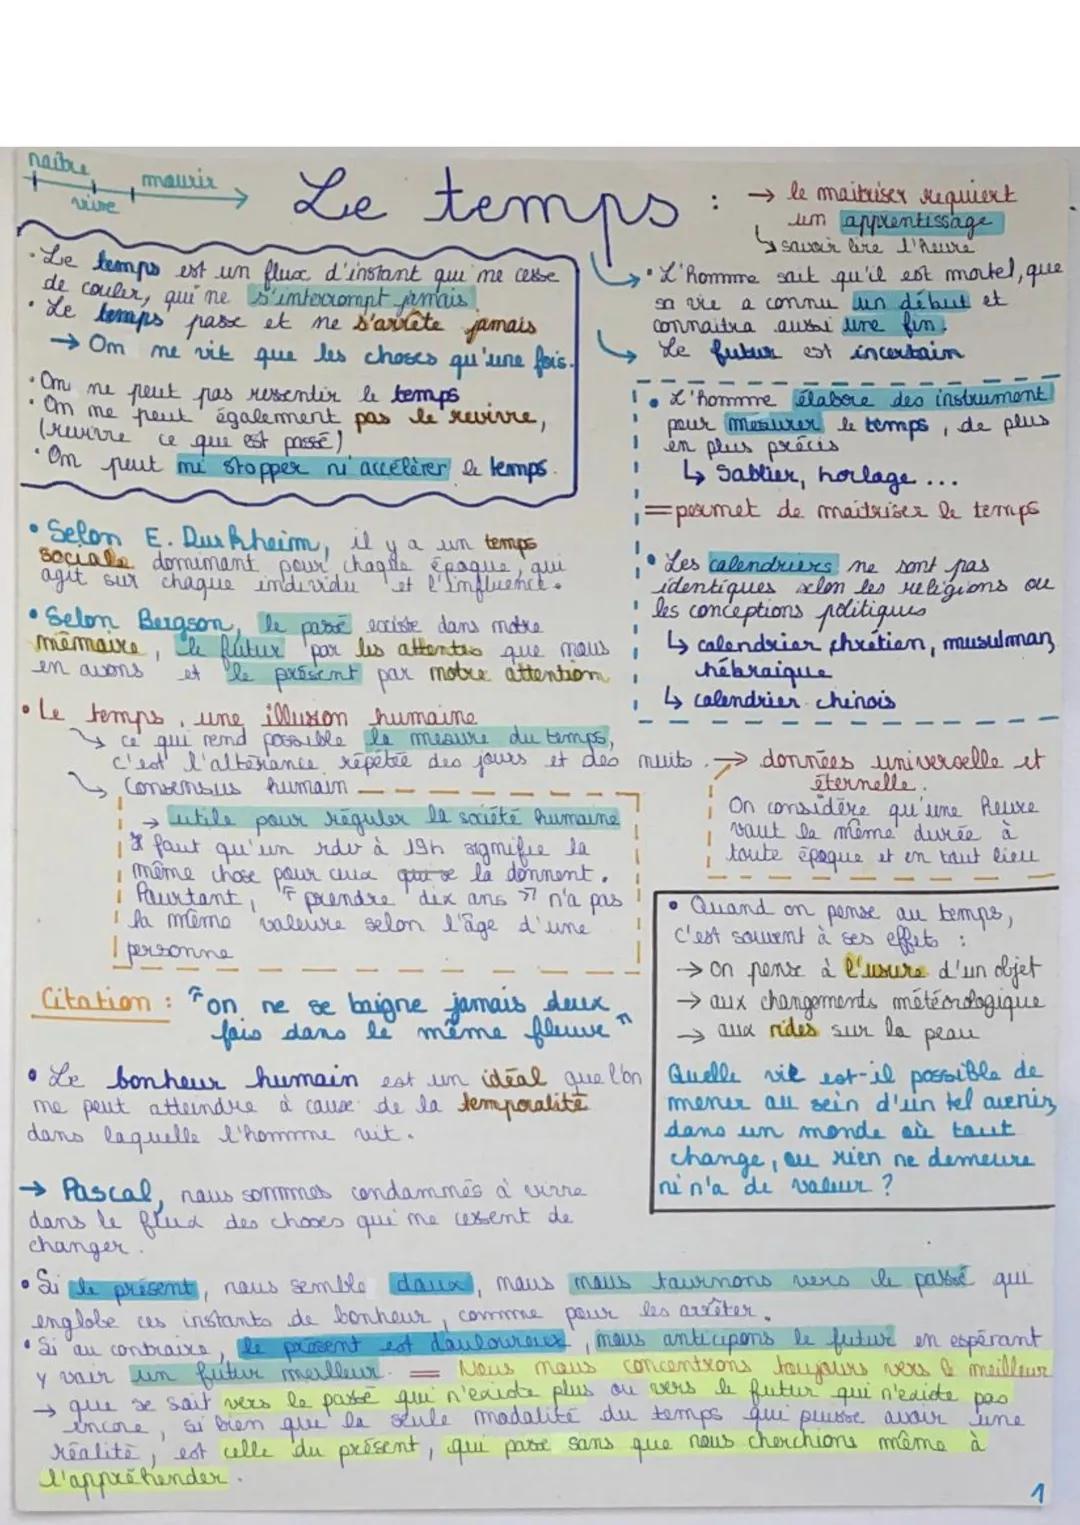 naître
vivre
mourir
Le temps :
→ le maitriser requiert
un apprentissage
↳ savoir lire l'heure
• Le temps est un flux d'instant qui ne cesse
de couler, qui ne s'interrompt jamais
• Le temps passe et ne s'arrête jamais
→ On ne vit que les choses qu'une fois.
• On ne peut pas resentir le temps
• On ne peut également pas le revivre,
(revivre ce que est passé)
• On peut ni stopper ni accélérer le temps.
• L'homme sait qu'il est mortel, que
sa vie a connu un début et
connaitra aussi une fin.
Le futur est incertain
• L'homme élabore des instrument
pour mesurer le temps, de plus
en plus précis
↳ Sablier, horlage ...
= permet de maitriser le temps
• Les calendriers ne sont pas
identiques selon les religions ou
les conceptions politiques
↳ calendrier chrétien, musulman,
hébraique
↳ calendrier chinois
• Selon E. Durkheim, il y a un temps
sociale dominant pour chaque époque, qui
agit sur chaque individu et l'influence.
• Selon Bergson, le passé existe dans notre
mémoire, le futur par les attentes que nous
en avons et le présent par notre attention
• Le temps, une illusion humaine
↳ ce qui rend possible la mesure du temps,
c'est l'alterance répétée des jours et des nuits. → données universelle et
éternelle.
↳ Consensus humain
→ utile pour réguler la société humaine
Il faut qu'un rdv à 19h signifie la
même chose pour ceux qui se la donnent.
Pourtant, "prendre dix ans" n'a pas
la même valeure selon l'âge d'une
personne
On considère qu'une heure
vaut la même durée à
toute époque et en tout lieu
Citation : "on ne se baigne jamais deux
fois dans le même fleuve"
• Le bonheur humain est un idéal que l'on
ne peut atteindre à cause de la temporalité
dans laquelle l'homme vit.
→ Pascal, nous sommes condamnés à vivre
dans le flux des choses qui ne cessent de
changer.
• Quand on pense au temps,
c'est souvent à ses effets :
→ on pense à l'usure d'un objet
→ aux changements météorologique
→ aux rides sur la peau
Quelle vie est-il possible de
mener au sein d'un tel avenir,
dans un monde où tout
change, ou rien ne demeure
ni n'a de valeur ?
• Si le présent, nous semble doux, nous nous tournons vers le passé qui
englobe ces instants de bonheur, comme pour les arrêter.
• Si au contraire, le présent est douloureux, nous anticipons le futur en espérant
y voir un futur meilleur. = Nous nous concentrons toujours vers le meilleur
→ que se soit vers le passé qui n'existe plus ou vers le futur qui n'existe pas
encore, si bien que la seule modalité du temps qui puisse avoir une
réalité, est celle du présent, qui passe sans que nous cherchions même à
l'appréhender.
1